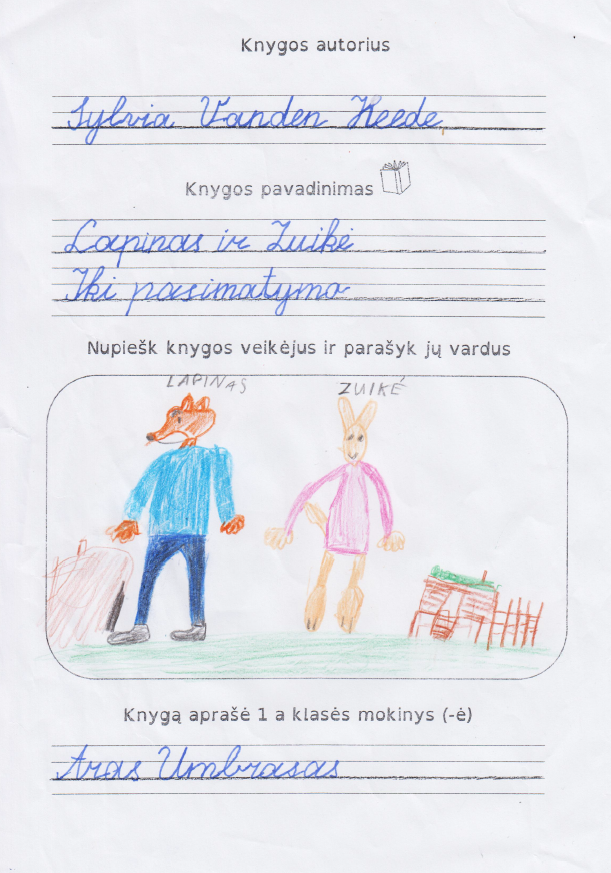 Knygos autorius
Sylvia Vanden Heede
Knygos pavadinimas
Lapinas ir Zuikė
Iki pasimatymo
Nupiešk knygos veikėjus ir parašyk jų vardus
LAPINAS ZUIKĖ
Knygą aprašė 1 a klasės mokinys (-ė)
Aras Umbrasas